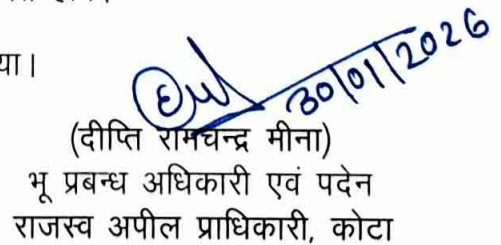 या।
30/01/2026
(दीप्ति रामचन्द्र मीना)
भू प्रबन्ध अधिकारी एवं पदेन
राजस्व अपील प्राधिकारी, कोटा